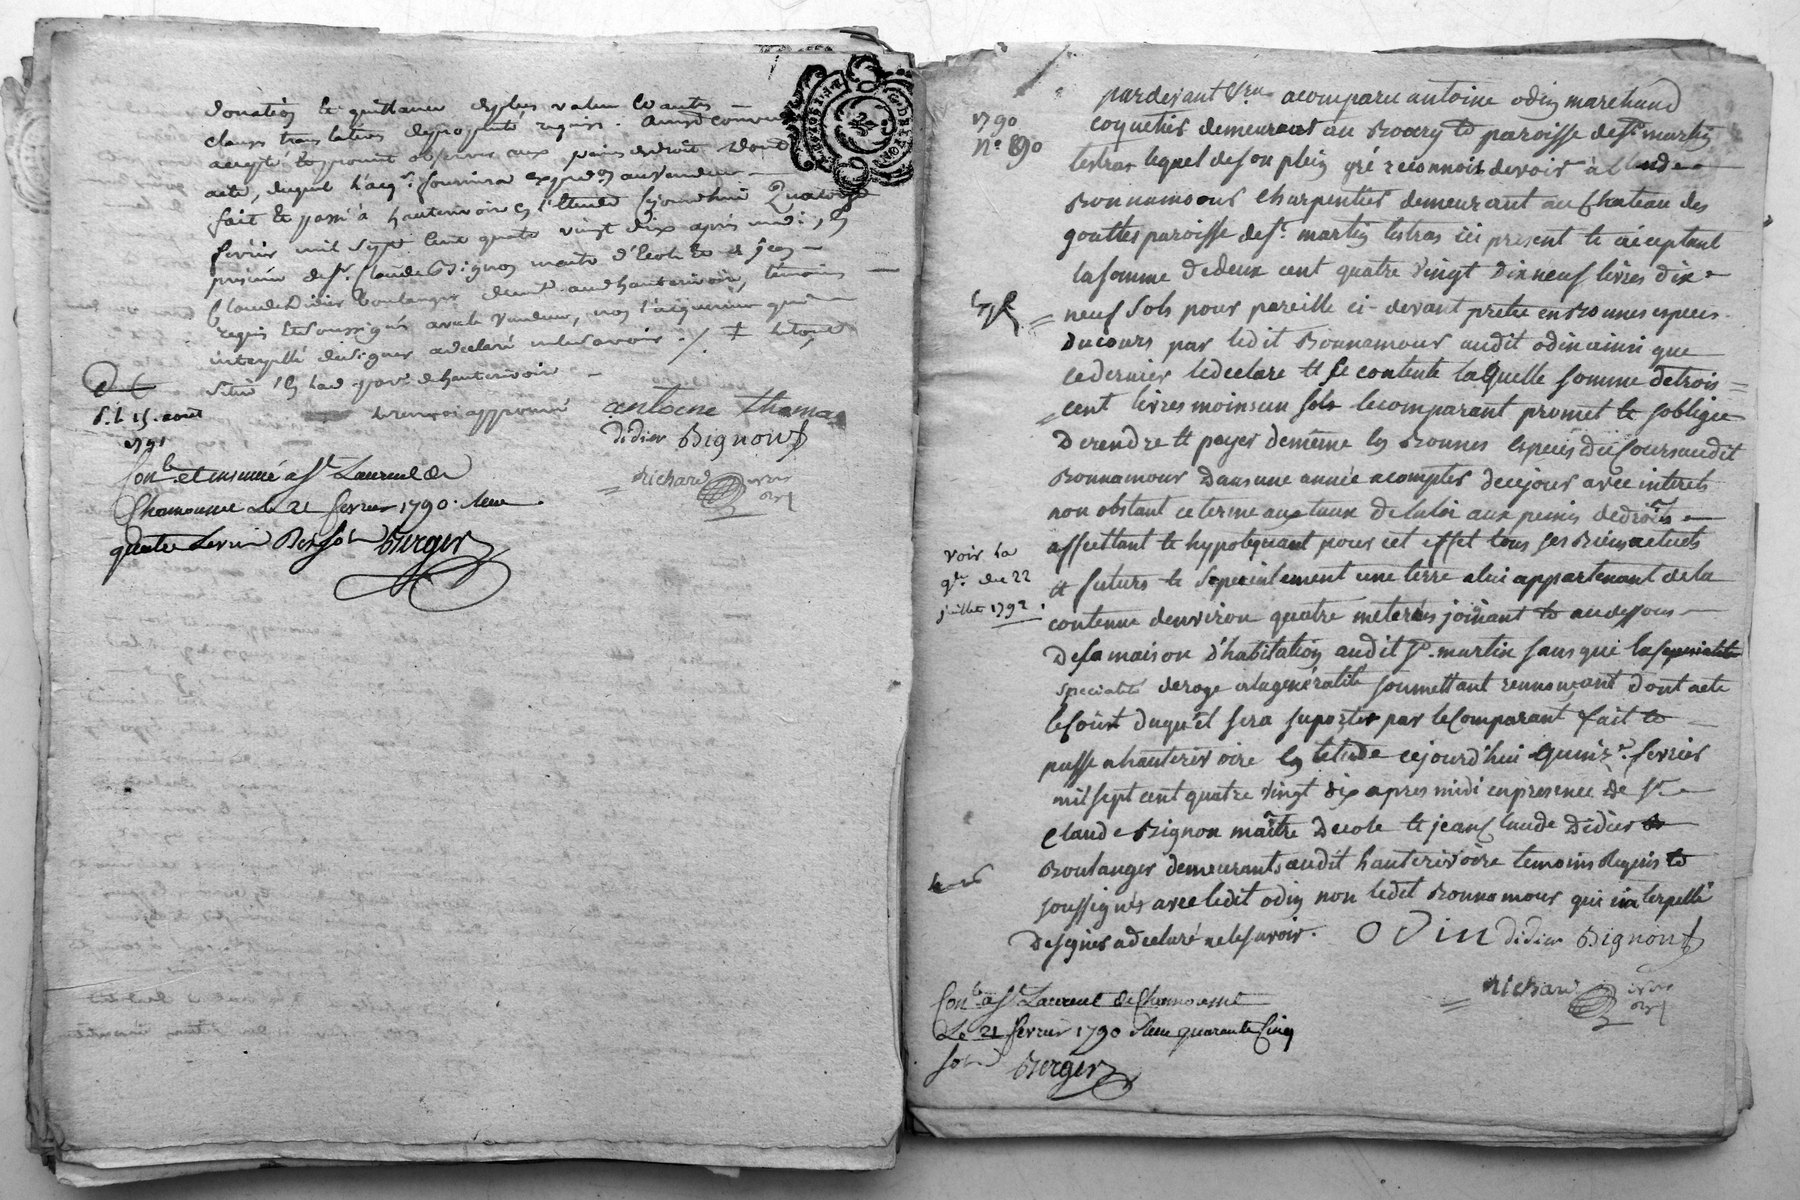 donation et quittance de plus value et autes
clauses translatives de propriété requises. Ainsi convenu
accepté et promis observer aux peines de droit dont
acte, duquel l'acqr. fournira expedon. au vendeur
fait et passé à hauterivoire en l'Etude ce jourd'hui Quatorze
fevrier mil sept cent quatre vingt dix après midi, en
présence de Sr. Claude Bignon maitre d'Ecole et de jean
Claude Didier boulanger demt. aud hauterivoire, témoins
requis et soussignés avec le vendeur, non l'acquereur qui
interpellé de signer a declaré ne le savoir ./. ‡ le tout
situé en lad. parr. d'hauterivoire
le renvoi approuvé
antoine thomas
didier Bignon
Richard
D. E
d. l. 15. aout
1791
Conlé. et insinué a St. Laurent de
Chamousset Le 21 fevrier 1790. Reçu
quatre Livres Berger
1790
No. 90
pardevant acomparu antoine odin marchand
coquetier demeurant au paroisse de St. martin
lestras lequel de son plein gré reconnoit devoir à Claude
Bonnamour Charpentier demeurant au Chateau des
gouttes paroisse de St. martin lestras ici présent et acceptant
la somme de deux cent quatre vingt dix neuf livres dix
neuf sols pour pareille ci-devant pretée en Bonnes especes
du cours par ledit Bonnamour audit odin ainsi que
ce dernier le declare et se contente laquelle somme de trois
cent livres moins un sols le comparant promet et soblige
De rendre et payer de meme en Bonnes especes du Cours audit
Bonnamour Dans une année a compter de ce jour avec interets
non obstant ce terme aux taux de la loi aux peines de droits
affectant et hypotequant pour cet effet tous ses Biens actuels
et futurs et specialement une terre a lui appartenant de la
contenue denviron quatre meterées joignant et au dessous
De sa maison d'habitation audit St. martin sans que la specialité
specialité deroge a la generalité soumettant rennonçant dont acte
le Coût duquel sera suporter par le Comparant fait et
passé a hauterivoire en letude cejourd'hui quinze. fevrier
mil sept cent quatre vingt dix apres midi en presence de Sr.
Claude Bignon maître Decole et jean Claude Didier
Boulanger demeurants audit hauterivoire temoins Requis et
soussignés avec ledit odin non ledit Bonnamour qui interpellé
De signer a declaré ne le savoir.
ODin didier Bignon
Richard
voir la
qce. du 22
juillet 1792.
Conlé. a St. Laurent de Chamousset
Le 21 fevrier 1790 Reçu quarante Cinq
sols Berger